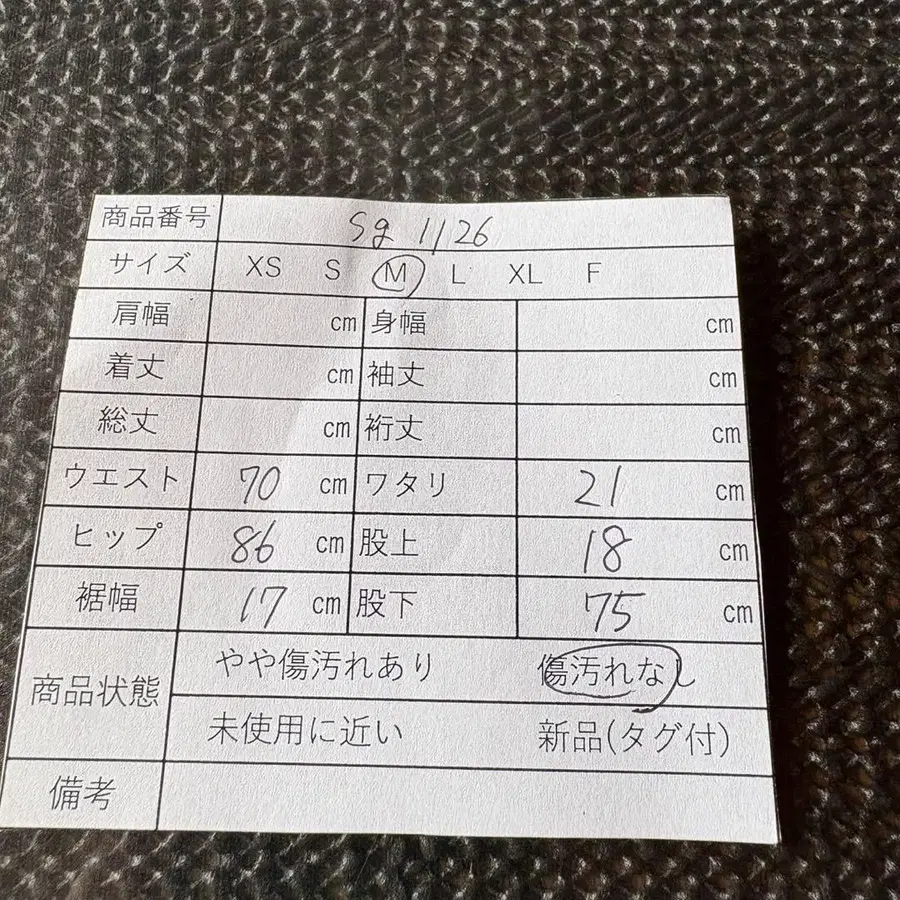 商品番号 Sg 1126
サイズ XS S M L XL F
肩幅 cm 身幅 cm
着丈 cm 袖丈 cm
総丈 cm 裄丈 cm
ウエスト 70 cm ワタリ 21 cm
ヒップ 86 cm 股上 18 cm
裾幅 17 cm 股下 75 cm
商品状態
やや傷汚れあり 傷汚れなし
未使用に近い 新品(タグ付)
備考